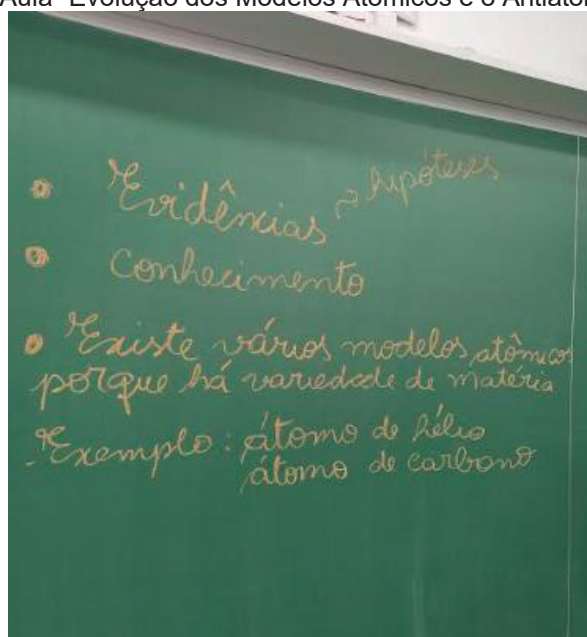 Aula "Evolução dos Modelos Atômicos e o Antiáto
• Evidências → hipóteses
• conhecimento
• Existe vários modelos atômicos
porque há variedade de matéria
- Exemplo: átomo de hélio
átomo de carbono